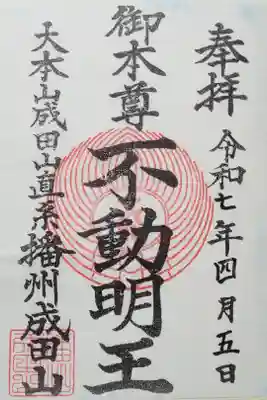 奉拝
令和七年四月五日
御本尊
不動明王
大本山成田山直系播州成田山